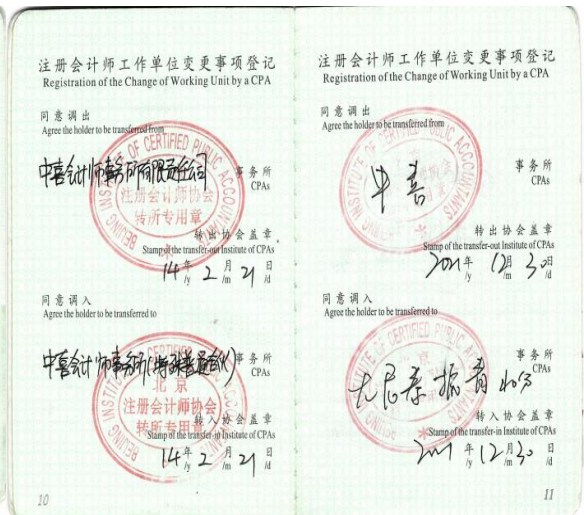 注册会计师工作单位变更事项登记
Registration of the Change of Working Unit by a CPA
同意调出
Agree the holder to be transferred from
中喜会计师事务所有限责任公司
事务所
CPAs
BEIJING INSTITUTE OF CERTIFIED PUBLIC ACCOUNTANTS
注册会计师协会
转所专用章
转出协会盖章
Stamp of the transfer-out Institute of CPAs
14年 2月 21日
/y /m /d
同意调入
Agree the holder to be transferred to
中喜会计师事务所(特殊普通合伙)
事务所
CPAs
北京
注册会计师协会
转所专用章
转入协会盖章
Stamp of the transfer-in Institute of CPAs
14年 2月 21日
/y /m /d
10
注册会计师工作单位变更事项登记
Registration of the Change of Working Unit by a CPA
同意调出
Agree the holder to be transferred from
中喜
事务所
CPAs
BEIJING INSTITUTE OF CERTIFIED PUBLIC ACCOUNTANTS
转出协会盖章
Stamp of the transfer-out Institute of CPAs
2021年 12月 30日
/y /m /d
同意调入
Agree the holder to be transferred to
事务所
CPAs
转入协会盖章
Stamp of the transfer-in Institute of CPAs
2021年 12月 30日
/y /m /d
11